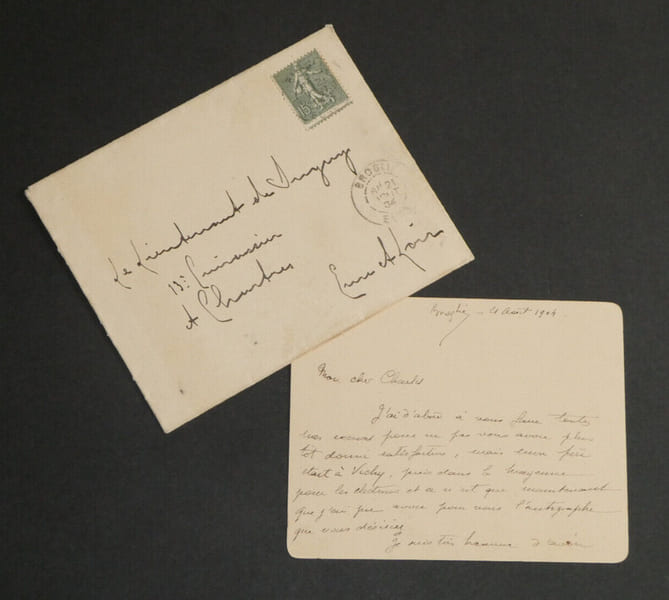 15
BROGLIE
21
04
Le Lieutenant de
13e Cuirassier
A Chartres
Eure et Loir
Broglie - 21 Août 1904
Mon cher Charles
J'ai d'abord à vous faire toutes
mes excuses pour ne pas vous avoir plus
tôt donné satisfaction, mais mon père
était à Vichy, puis dans la Mayenne
pour les élections et ce n'est que maintenant
que j'ai pu avoir pour vous l'autographe
que vous désiriez
Je suis très heureux d'avoir